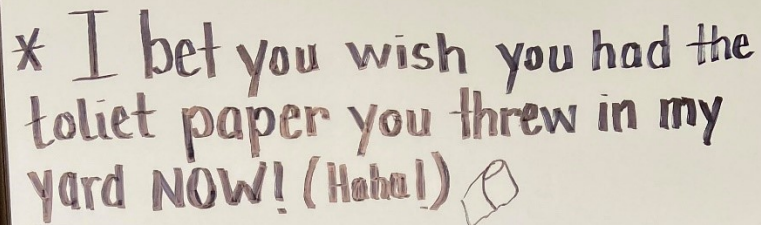 * I bet you wish you had the
toliet paper you threw in my
yard NOW! (Haha!)